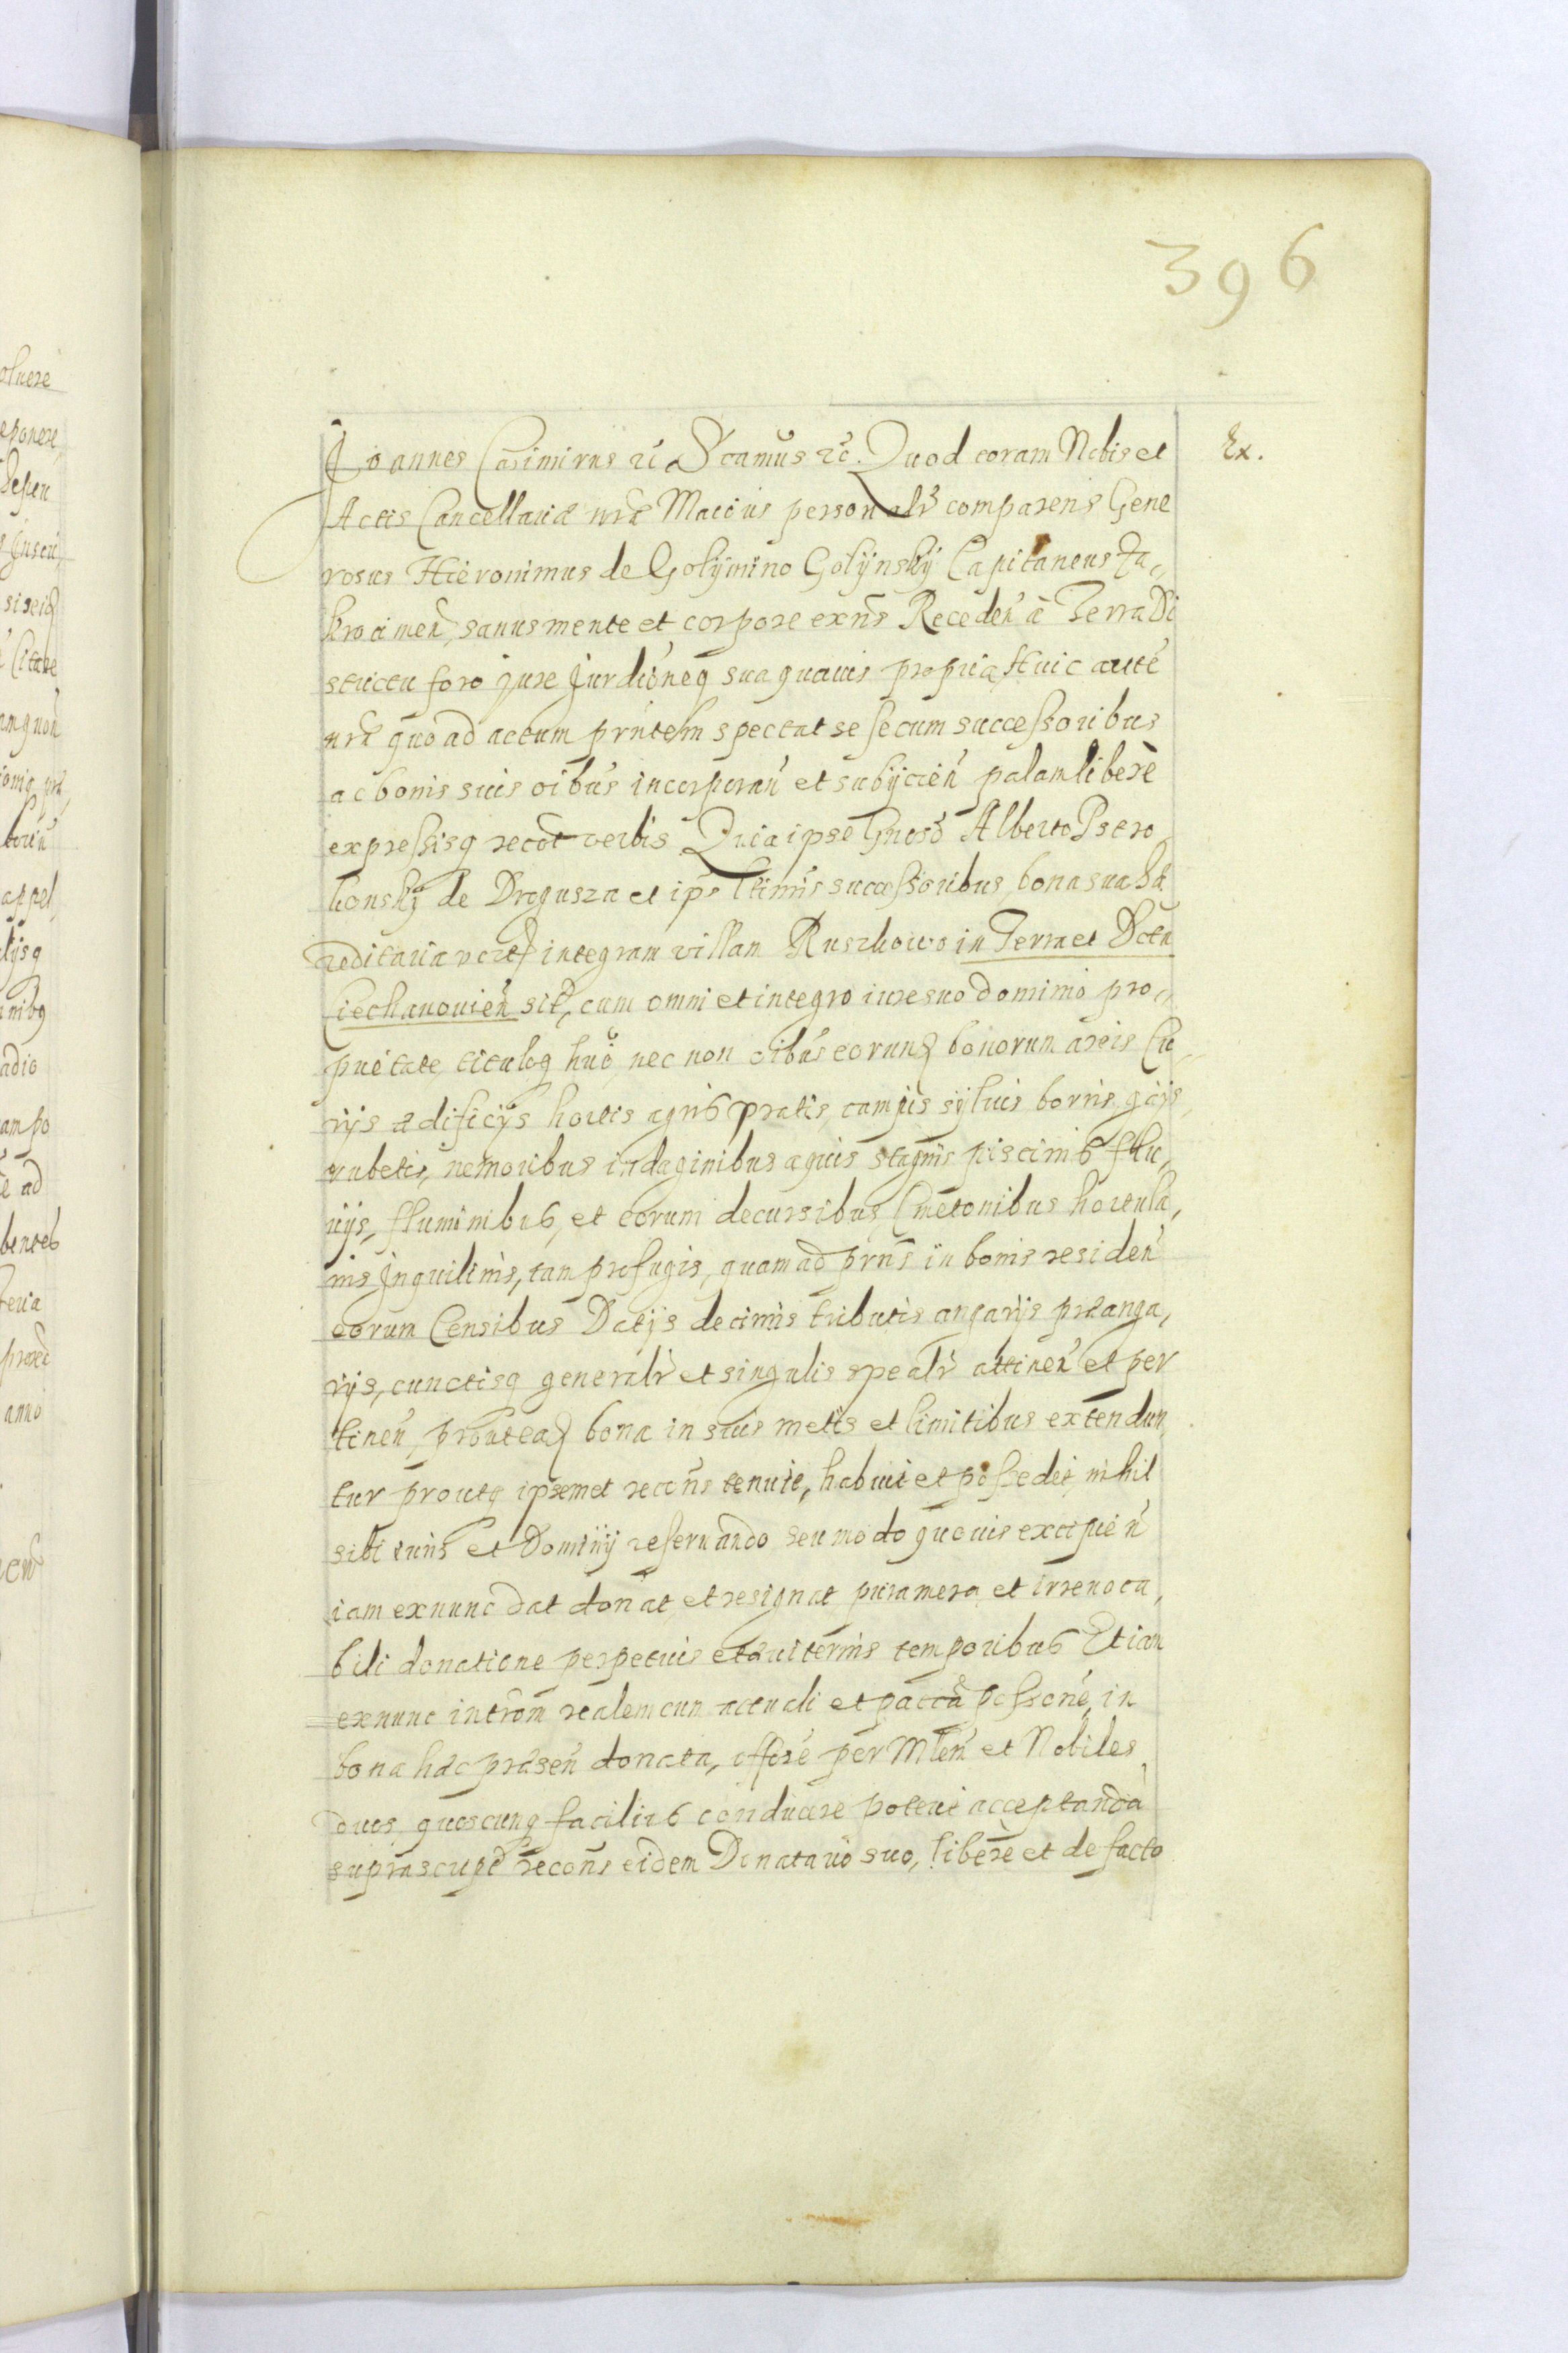 396
Joannes Casimirus etc̃ Sc̃amus etc̃. Quod coram Nobis et
Ex.
Actis Cancellariæ nr̃æ Maioris personalr̃ comparens Gene
rosus Hieronimus de Golÿmino Golÿnskÿ Capitaneus Za,
kro cimeñ, sanus mente et corpore exñs Recedeñ à Terra Di
strictu foro jure Jurdiõneq suaquauis propria, Huic aut̃e
nr̃æ quo ad actum pr̃ntem spectat se se cum successoribus
ac bonis suis oĩbus incorporañ et subÿcieñ palam liberè
expressisq recõt verbis Quia ipse Gnosõ Alberto Psaro,
konskÿ de Drogusza et ips ltimis successoribus, bona sua hæ
reditaria v̄czt integram villam Ruszkowo in Terra et Dctu
Ciechanouieñ sit, cum omni et integro iure suo dominio pro,
prietate tituloq hm̃õ, nec non oĩbus eorund bonorum areis Cu,
rÿs ædificÿs hortis agris pratis, campis sÿluis borris, gaÿs,
rubetis, nemoribus indaginibus aquis stagnis piscinis flu,
uÿs, fluminibus, et eorum decursibus, Cmetonibus hortula,
nis Jnquilinis, tam profugis, quam ad prñs in bonis resideñ
eorum Censibus Datÿs decimis tributis angarÿs præanga,
rÿs, cunctisq generalr̃ et singulis spealr̃ attineñ et per
tineñ, prout ead bona in suis metis et limitibus extendun
tur proutq ipsemet recoñs tenuit, habuit et possedit, nihil
sibi iuris et Dominÿ reseruando seu modo quouis excipieñ
iam exnunc dat donat et resignat pura mera et irreuoca,
bili donatione perpetuis et æuiternis temporibus Et iam
exnunc intrõm realem cum actuali et pacca possõne, in
bona hæc præseñ donata, officsẽ per Mleñ et Nobiles
duos quoscunq facilius conducere poterit acceptandã
suprascript recoñs eidem Donatario suo, liberè et de facto